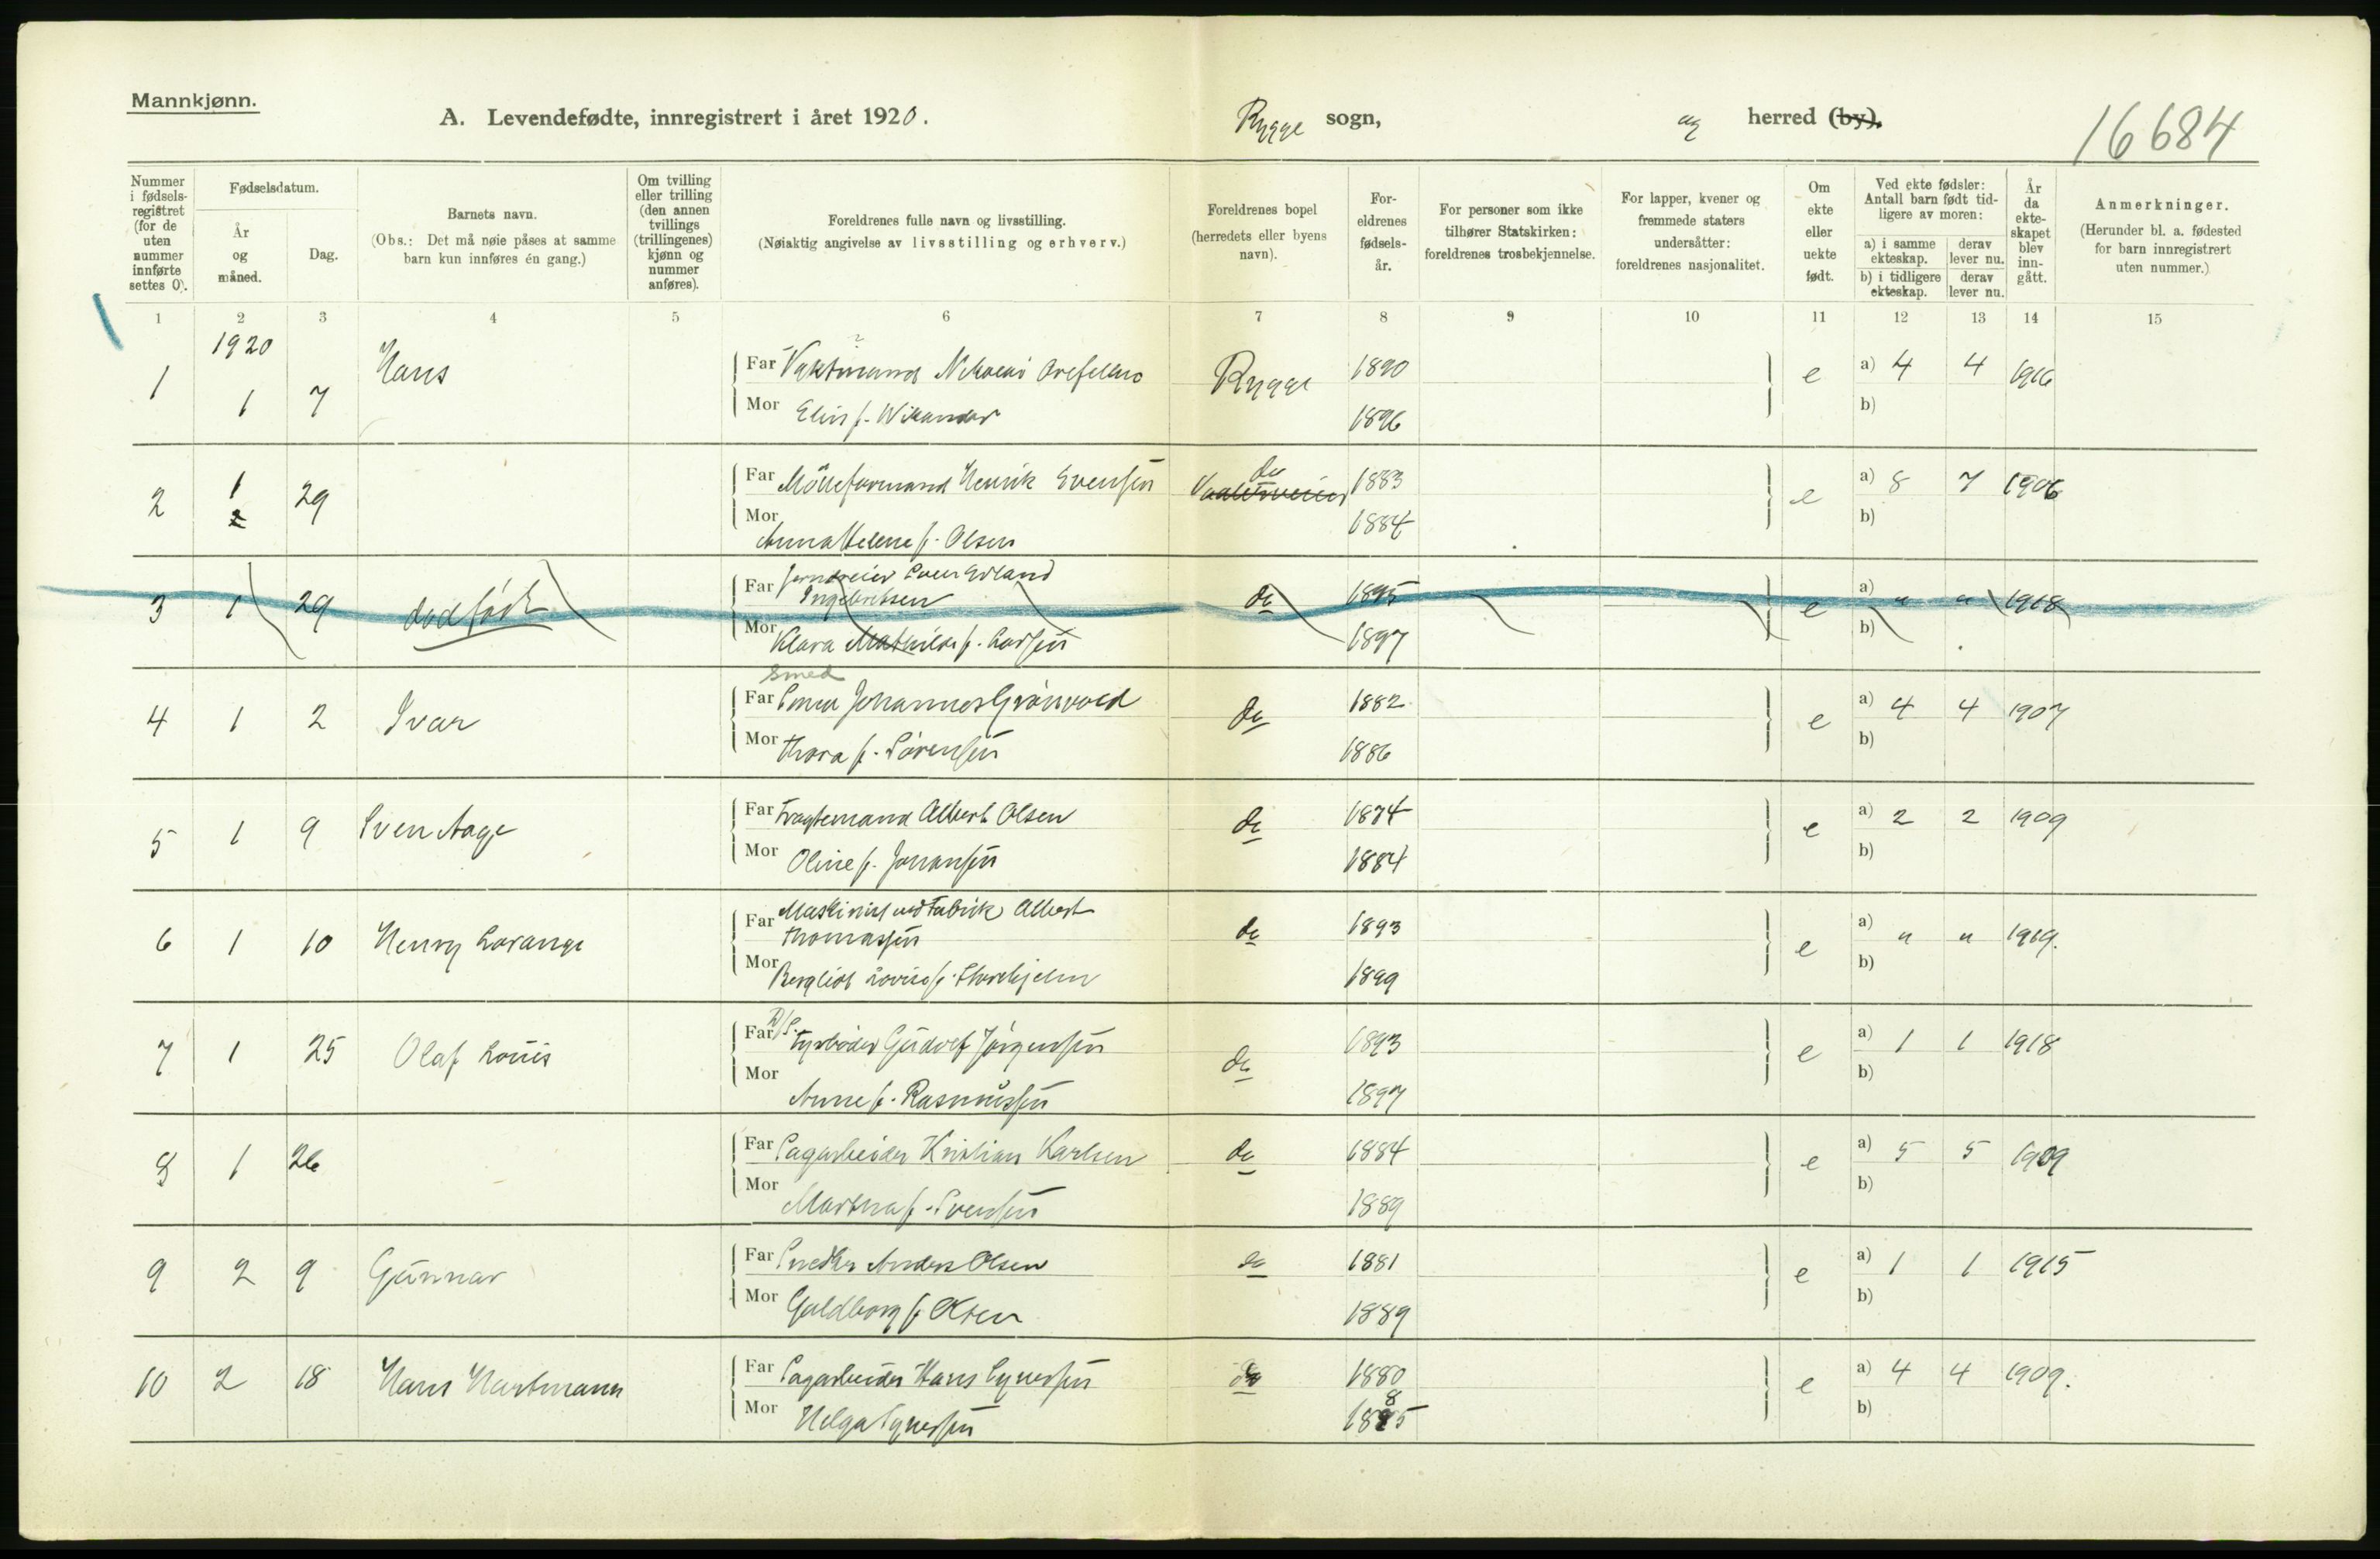 Mannkjønn.
A. Levendefødte, innregistrert i året 1920. Rygge sogn, og herred (by). 16684
Nummer i fødsels-registret (for de uten nummer innførte settes 0).
Fødselsdatum.
År og måned.
Dag.
Barnets navn.
(Obs.: Det må nøie påses at samme barn kun innføres én gang.)
Om tvilling eller trilling (den annen tvillings (trillingenes) kjønn og nummer anføres).
Foreldrenes fulle navn og livsstilling.
(Nøiaktig angivelse av livsstilling og erhverv.)
Foreldrenes bopel (herredets eller byens navn).
For-eldrenes fødsels-år.
For personer som ikke tilhører Statskirken: foreldrenes trosbekjennelse.
For lapper, kvener og fremmede staters undersåtter: foreldrenes nasjonalitet.
Om ekte eller uekte født.
Ved ekte fødsler: Antall barn født tid-ligere av moren:
a) i samme ekteskap. derav lever nu.
b) i tidligere ekteskap. derav lever nu.
År da ekte-skapet blev inn-gått.
Anmerkninger.
(Herunder bl. a. fødested for barn innregistrert uten nummer.)
1 2 3 4 5 6 7 8 9 10 11 12 13 14 15
1920
1 1 7 Hans Far Vaktmand Rygge 1890 e a) 4 4 1916
Mor Elin f. Wikander 1896 b)
2 1 2 29 Far Mölleformand Henrik Evensen do 1883 e a) 8 7 1906
Mor Anna Helene f. Olsen 1884 b)
3 1 29 dødfødt Far Jerndreier Sven Erland Ingebretsen do 1895 e a) " " 1918
Mor Klara Mathilde f. Larsen 1897 b)
Smed
4 1 2 Ivar Far Johannes Grönvold do 1882 e a) 4 4 1907
Mor Thora f. Sörensen 1886 b)
5 1 9 Sven Aage Far Fragtemand Albert Olsen do 1874 e a) 2 2 1909
Mor Oline f. Johansen 1884 b)
6 1 10 Henry Lorange Far Maskinist ved Fabrik Albert Thomassen do 1893 e a) " " 1919.
Mor Bergliot Lovise f. 1899 b)
7 1 25 Olaf Louis Far D/S. Fyrböder Gudolf Jörgensen do 1893 e a) 1 1 1918
Mor Anne f. Rasmussen 1897 b)
8 1 26 Far Sagarbeider Kristian Karlsen do 1884 e a) 5 5 1909
Mor Martha f. Svensen 1889 b)
9 2 9 Gunnar Far Snedker Anders Olsen do 1881 e a) 1 1 1915
Mor Guldborg f. Olsen 1889 b)
10 2 18 Hans Hartmann Far Sagarbeider Hans Syversen do 1880 e a) 4 4 1909.
Mor Helga Syversen 1885 b)